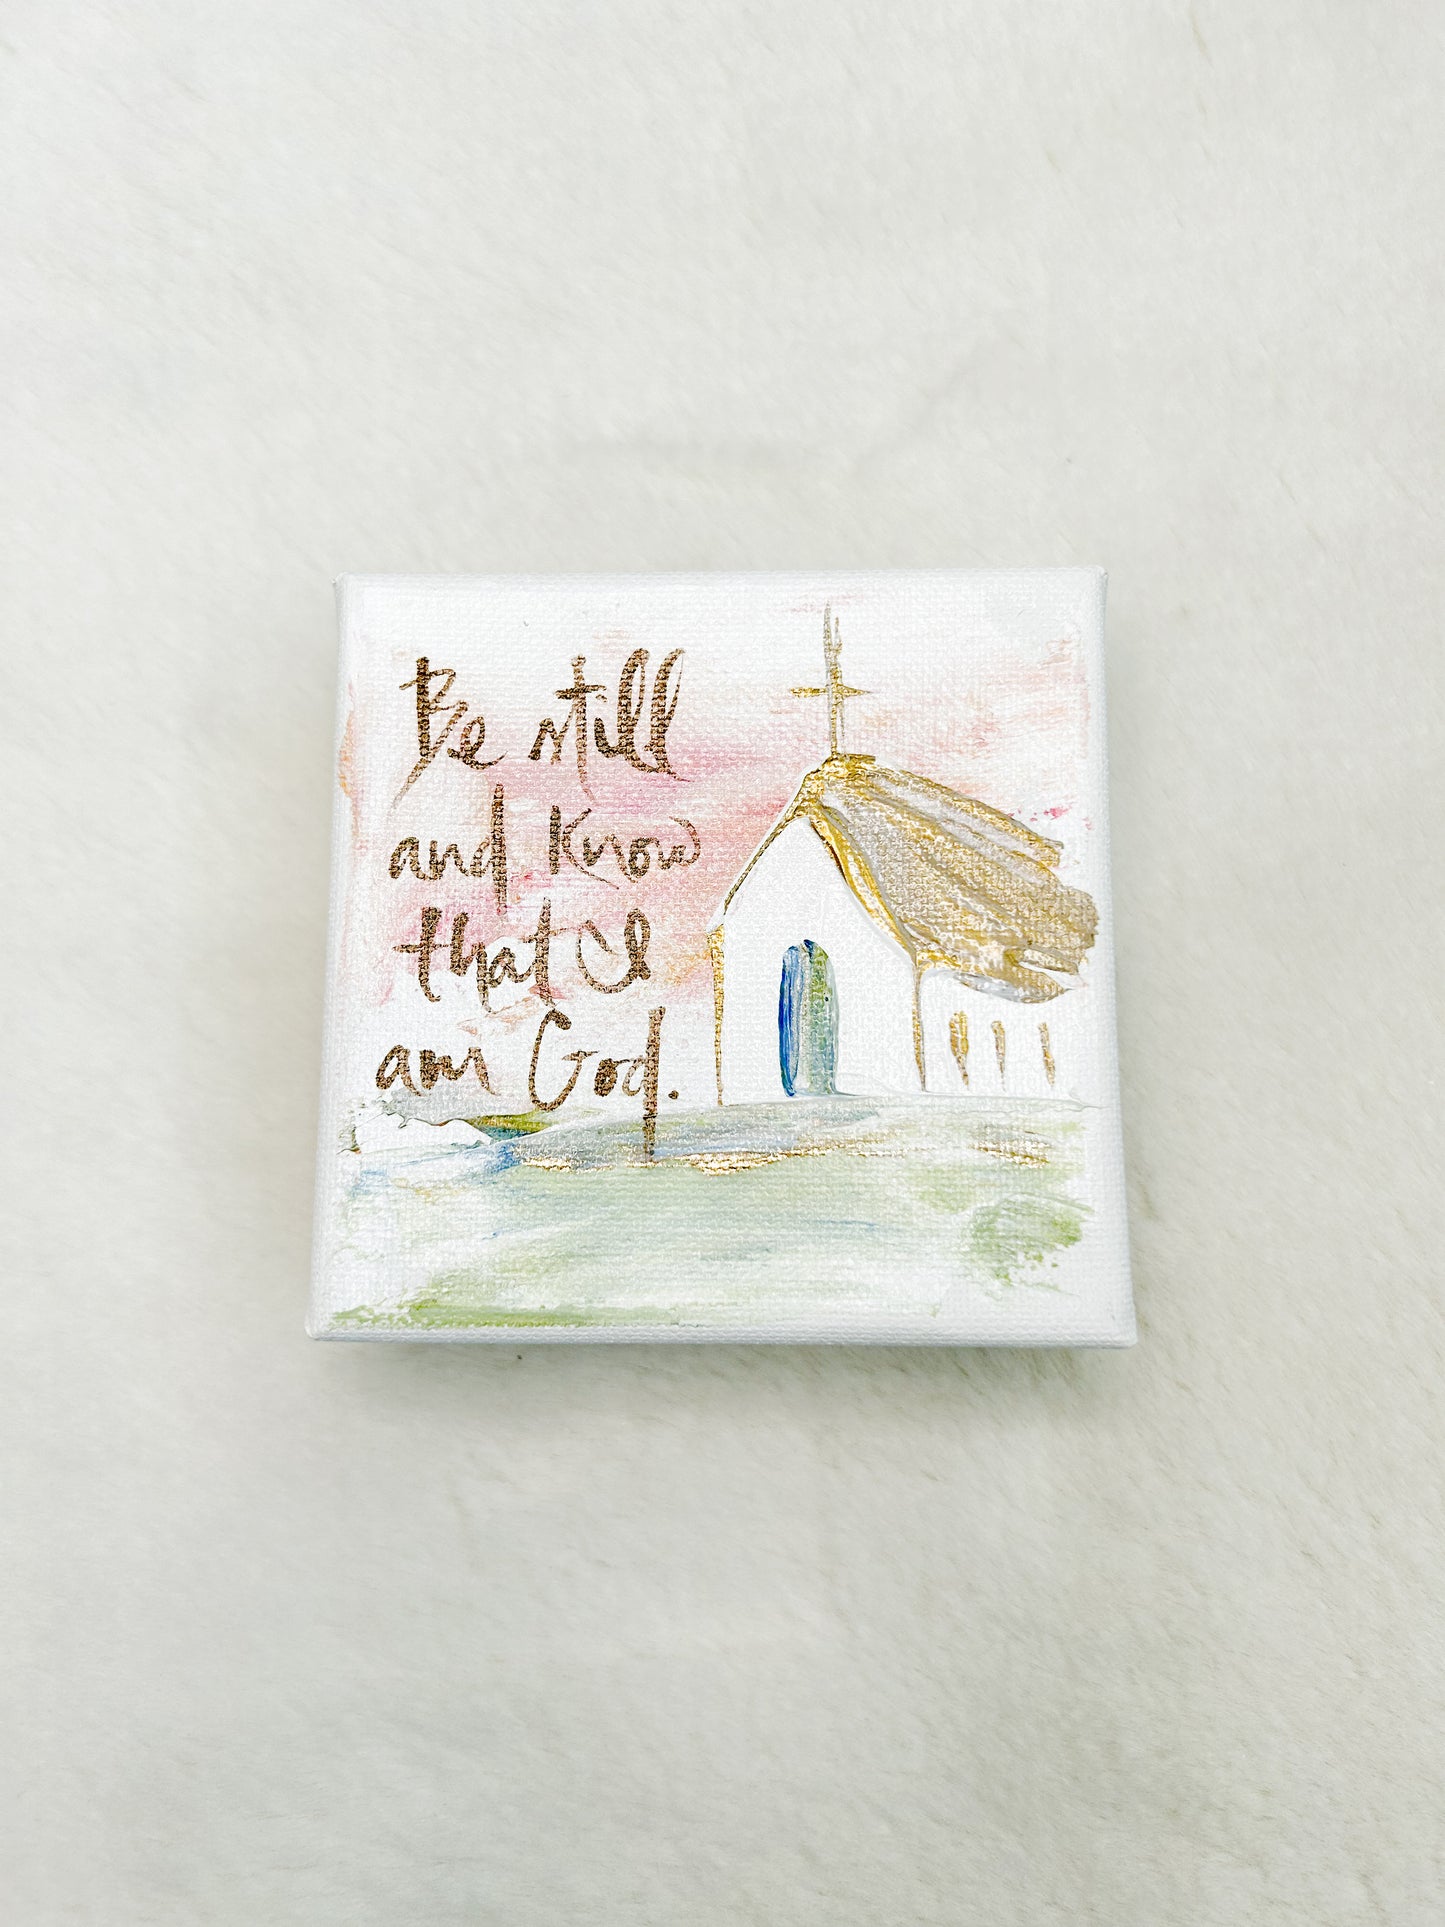 Be still
and know
that I
am God.